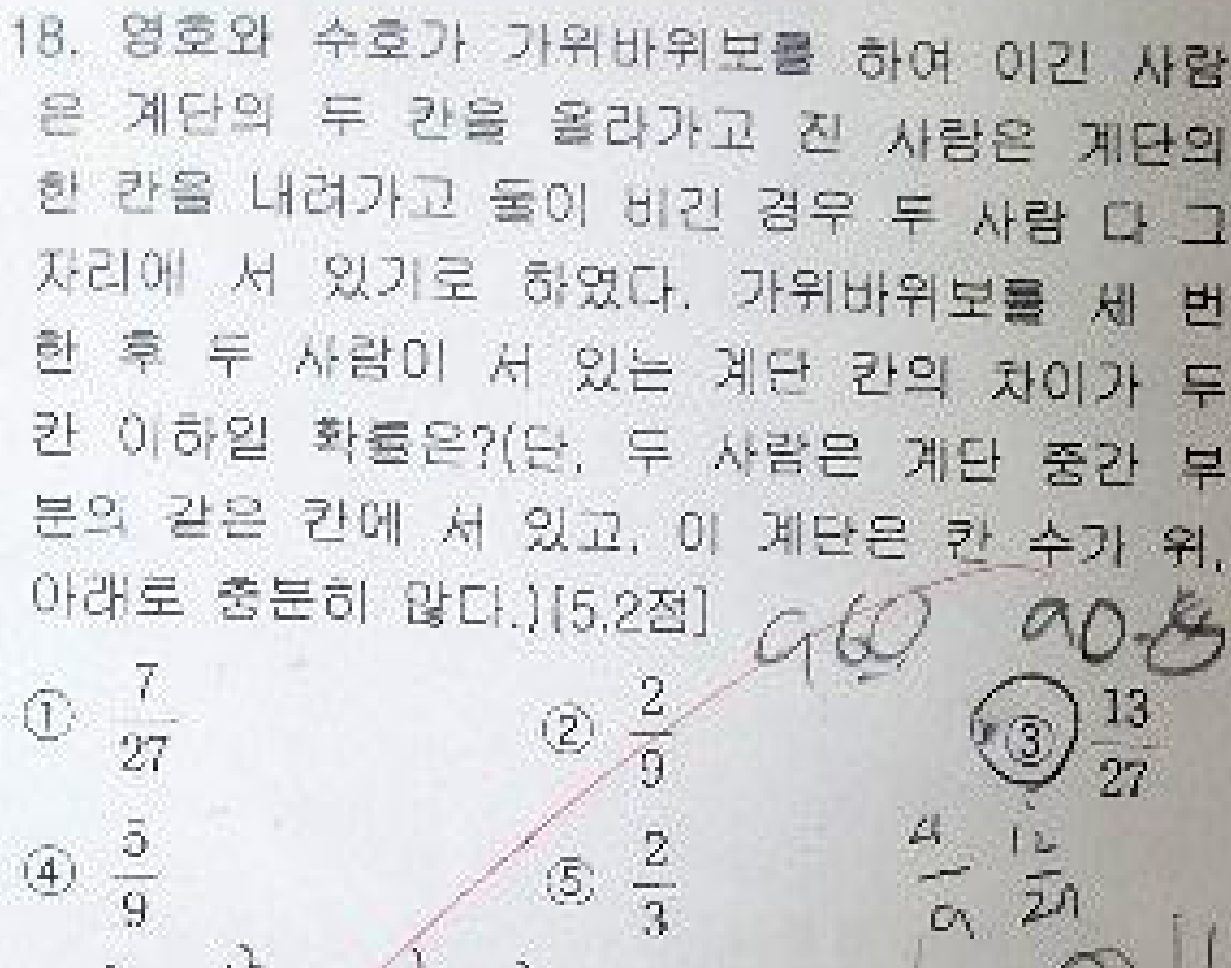 18. 영호와 수호가 가위바위보를 하여 이긴 사람
은 계단의 두 칸을 올라가고 진 사람은 계단의
한 칸을 내려가고 둘이 비긴 경우 두 사람 다 그
자리에 서 있기로 하였다. 가위바위보를 세 번
한 후 두 사람이 서 있는 계단 칸의 차이가 두
칸 이하일 확률은?(단, 두 사람은 계단 중간 부
분의 같은 칸에 서 있고, 이 계단은 칸 수가 위,
아래로 충분히 많다.)[5.2점]
① 7/27 ② 2/9 ③ 13/27
④ 5/9 ⑤ 2/3